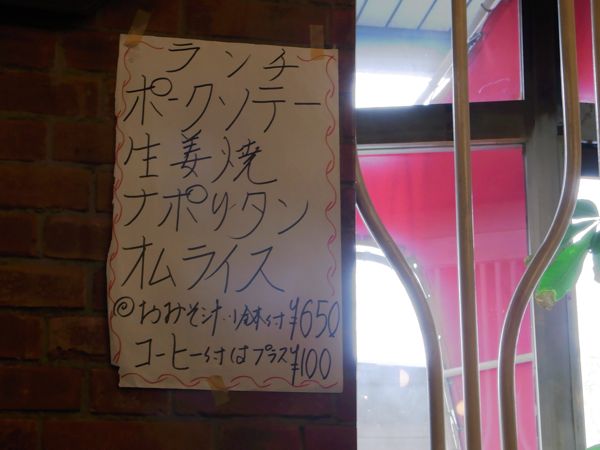 ランチ
ポークソテー
生姜焼
ナポリタン
オムライス
◎おみそ汁・小鉢付¥650
コーヒー付はプラス¥100